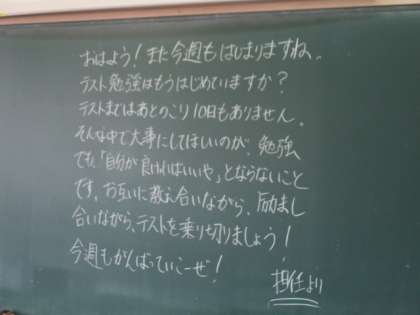 おはよう！また今週もはじまりますね。
テスト勉強はもうはじめていますか？
テストまではあとのこり10日もありません。
そんな中で大事にしてほしいのが、勉強
でも「自分が良ければいいや」とならないこと
です。お互いに教え合いながら、励まし
合いながら、テストを乗り切りましょう！
今週もがんばっていこーぜ！
担任より